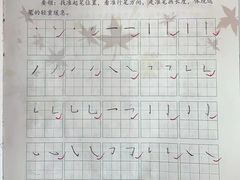 要领：找准起笔位置，看准行笔方向，定准笔画长度，体现运
笔的轻重缓急。